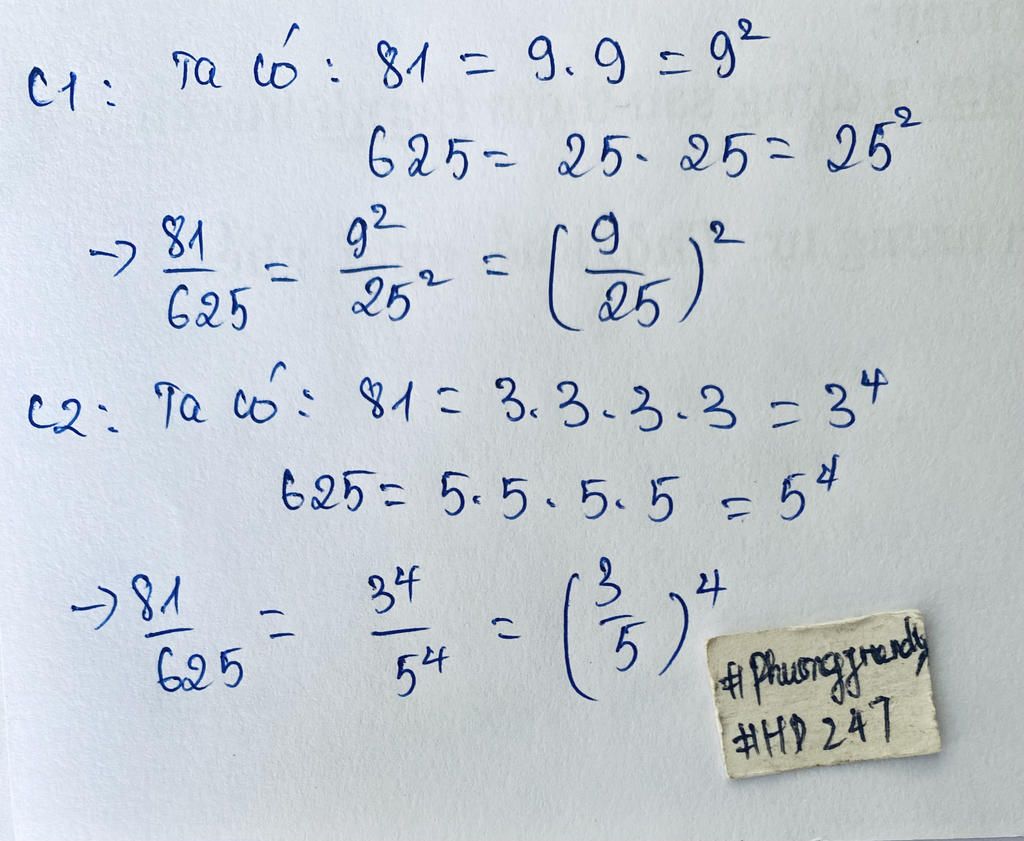 C1: Ta có: 81 = 9.9 = 9²
625 = 25.25 = 25²
→ 81/625 = 9²/25² = (9/25)²
C2: Ta có: 81 = 3.3.3.3 = 3⁴
625 = 5.5.5.5 = 5⁴
→ 81/625 = 3⁴/5⁴ = (3/5)⁴
#HD247